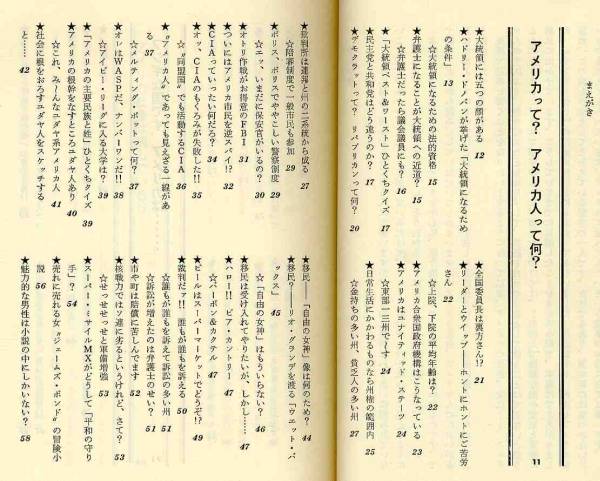 まえがき
アメリカって? アメリカ人って何? 11
★大統領には五つの顔がある 12
★ハドリー・ドノバンが挙げた「大統領になるため
の条件」 13
☆大統領になるための法的資格 15
★弁護士になることが大統領への近道? 15
☆弁護士だったら議会議員にも? 16
★「大統領ベスト&ワースト」ひとくちクイズ 17
★民主党と共和党はどう違うのか? 17
★デモクラットって? リパブリカンって何? 20
★全国委員長は裏方さん!? 21
★リーダーとウイップ——ホントにホントにご苦労
さん 22
☆上院、下院の平均年齢は? 22
★アメリカ合衆国政府機構はこうなっている 23
★アメリカはユナイティッド・ステーツ 24
☆東部一三州で〜す 24
★日常生活にかかわるものなら州権の範囲内 25
☆金持ちの多い州、貧乏人の多い州 27
★裁判所は連邦と州の二系統から成る 27
☆陪審制度で一般市民も参加 29
★ポリス、ポリスでややこしい警察制度 29
☆エッ、いまだに保安官がいるの? 30
★オトリ作戦がお得意のFBI 31
★ついにはアメリカ市民を逆スパイ!? 32
★CIAっていったい何だろ? 34
★オッ、CIAのもくろみが失敗した!! 35
☆〝同盟国〟でも活動するCIA 36
★〝アメリカ人〟であっても見えざる一線があ
る 37
★メルティング・ポットって何? 37
★オレはWASPだ、ナンバーワンだ!! 38
☆アイビー・リーグに入る大学は? 39
★「アメリカの主要民族と姓」ひとくちクイズ 39
★アメリカの根幹をなすところユダヤ人あり 40
☆これ、み〜んなユダヤ系アメリカ人 41
★社会に根をおろすユダヤ人をスケッチする
と…… 42
★移民——「自由の女神」像は何のため? 44
★移民?——リオ・グランデを渡る「ウエット・バ
ックス」 45
☆「自由の女神」はもういらない? 46
★移民は受け入れてやりたいが、しかし…… 47
★ハロー!! ビア・カントリー 47
☆バーボン&カクテル 47
★ビールはスーパーマーケットでどうぞ!? 49
★裁判だァ!! 誰もが誰もを訴える 50
☆誰もが誰もを訴えて訴訟の多い州 51
☆訴訟が増えたのは弁護士のせい? 51
★市や町は賠償に苦しんでます 52
★核戦力ではソ連に劣るというけれど、さて? 53
☆せっせっせっと軍備増強 53
★スーパー・ミサイルMXがどうして「平和の守り
手」? 54
★売れに売れる女〝ジェームズ・ボンド〟の冒険小
説 56
★魅力的な男性は小説の中にしかいない? 58